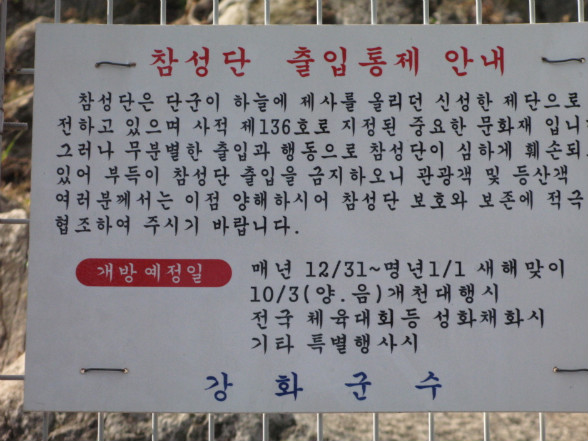 참성단 출입통제 안내
참성단은 단군이 하늘에 제사를 올리던 신성한 제단으로
전하고 있으며 사적 제136호로 지정된 중요한 문화재 입니
그러나 무분별한 출입과 행동으로 참성단이 심하게 훼손되
있어 부득이 참성단 출입을 금지하오니 관광객 및 등산객
여러분께서는 이점 양해하시어 참성단 보호와 보존에 적극
협조하여 주시기 바랍니다.
개방예정일 매년 12/31~명년1/1 새해맞이
10/3(양.음)개천대행시
전국 체육대회등 성화채화시
기타 특별행사시
강화군수